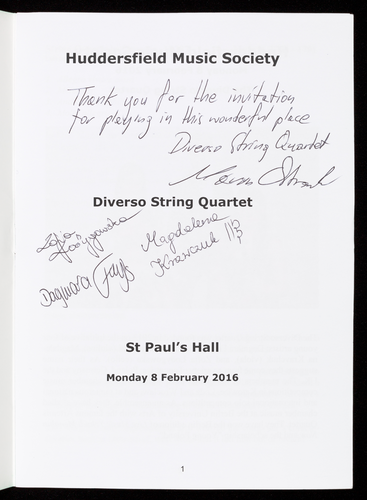 Huddersfield Music Society
Thank you for the invitation
for playing in this wonderful place
Diverso String Quartet
Diverso String Quartet
Magdalena
Krawczuk
Dagmara
St Paul's Hall
Monday 8 February 2016
1